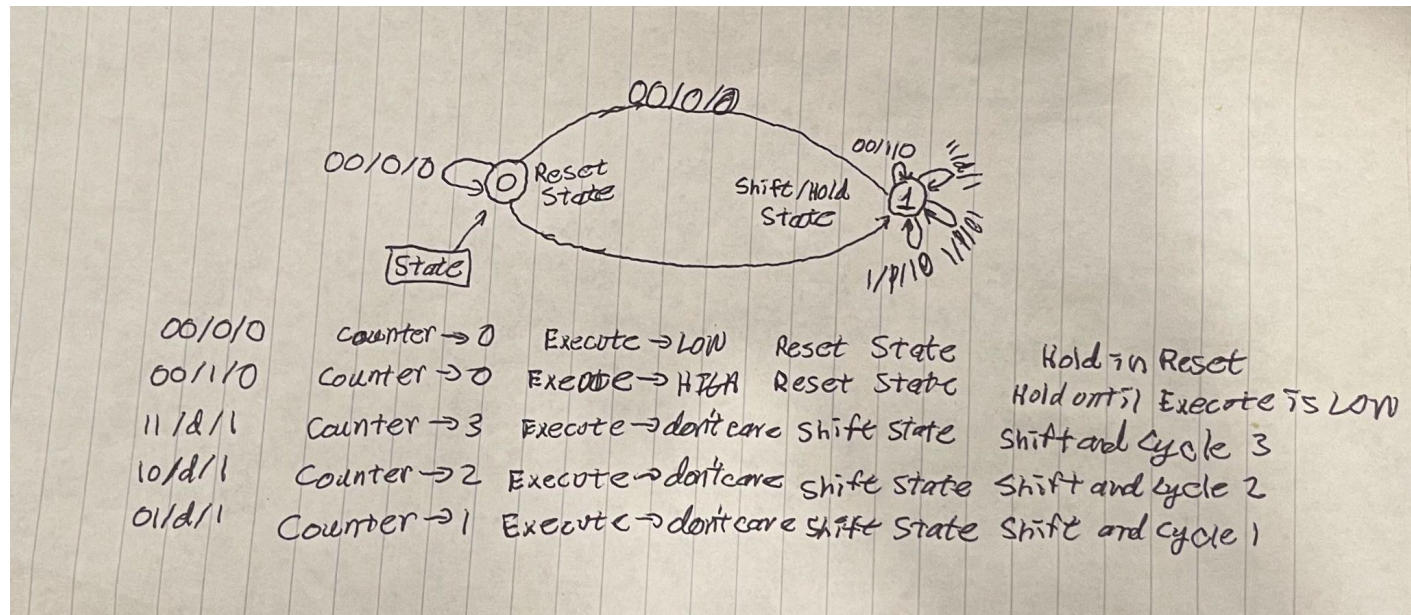 00/0/0
00/0/0
0
Reset
State
Shift/Hold
State
00/1/0
1
11/d/1
State
00/0/0 Counter → 0 Execute → LOW Reset State Hold in Reset
00/1/0 Counter → 0 Execute → HIGH Reset State Hold until Execute is LOW
11/d/1 Counter → 3 Execute → don't care Shift State Shift and Cycle 3
10/d/1 Counter → 2 Execute → don't care Shift State Shift and Cycle 2
01/d/1 Counter → 1 Execute → don't care Shift State Shift and Cycle 1